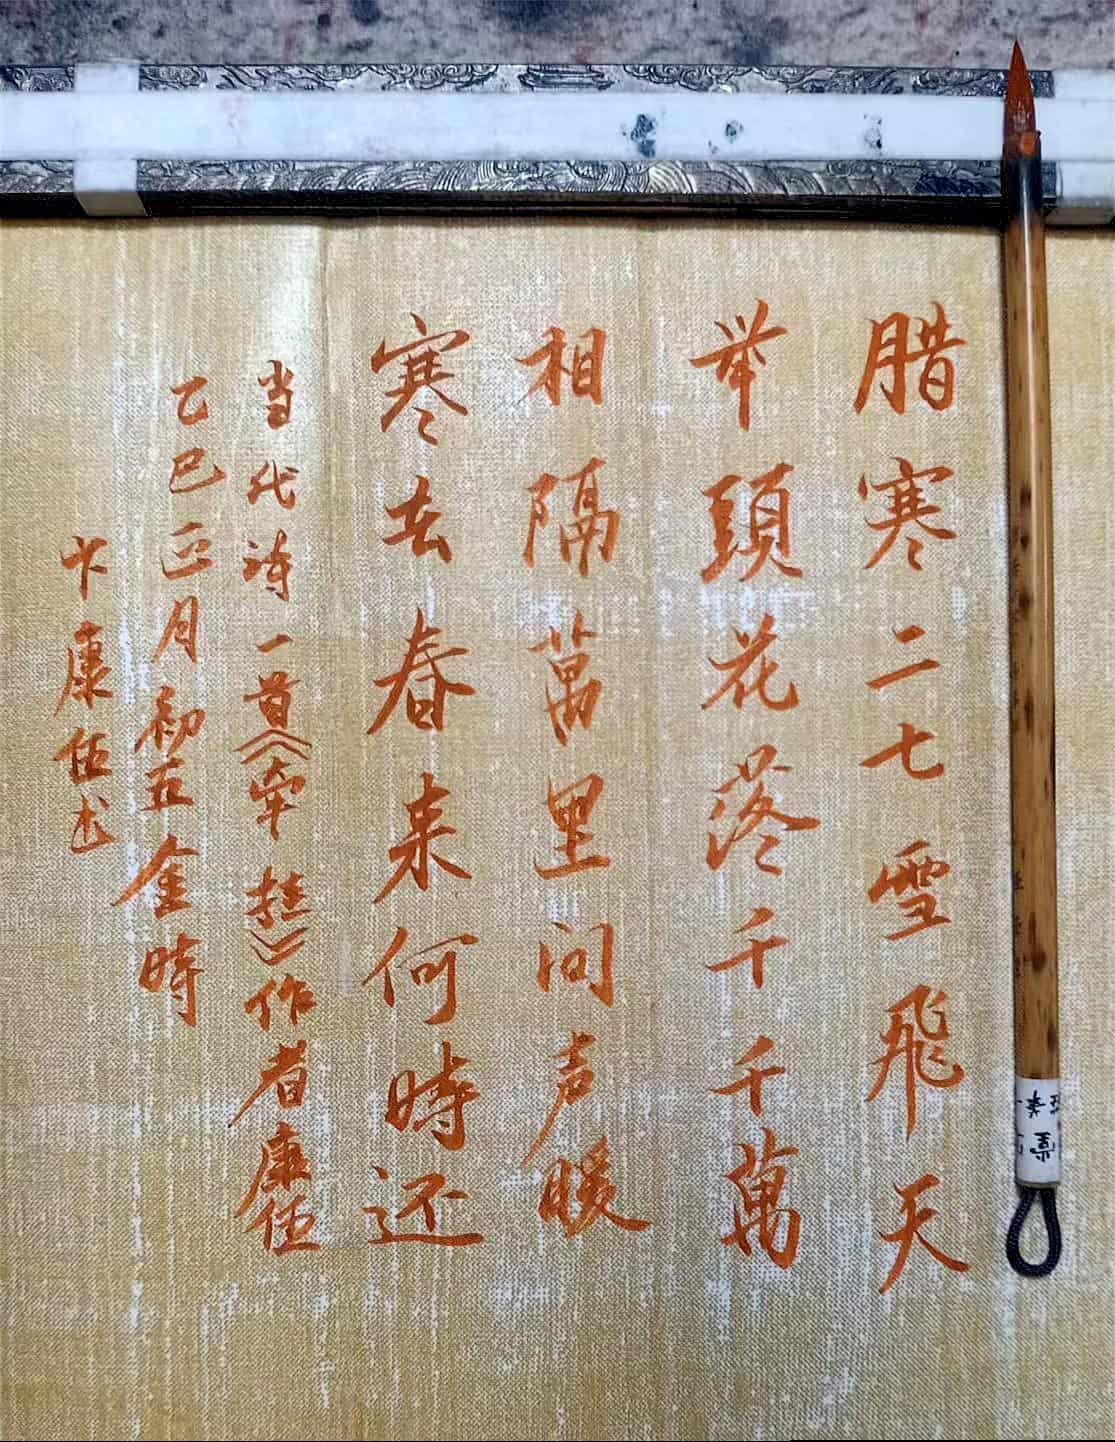 腊寒二七雪飛天
举頭花落千千萬
相隔萬里问声暖
寒去春来何時还
当代诗一首《牵
乙巳正月初五金時
卞康伍书